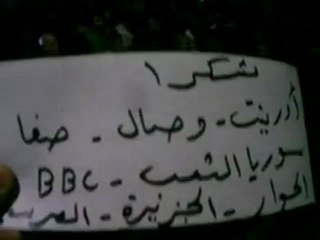 شكرا
أورينت - وصال - صفا
سوريا الشعب - BBC
الحوار - الجزيرة - العربية